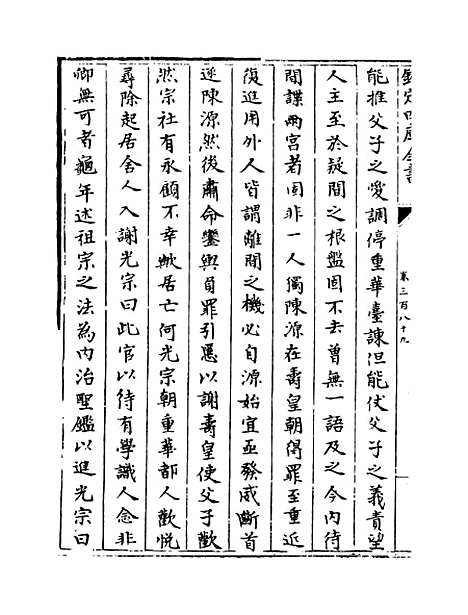 欽定四庫全書
卷三百八十九
能推父子之愛調停重華臺諫但能仗父子之義責望
人主至於疑間之根盤固不去曽無一語及之今内侍
間諜兩宫者固非一人獨陳源在壽皇朝得罪至重近
復進用外人皆謂離間之機必自源始宜亟發威斷首
逐陳源然後肅命鑾輿負罪引慝以謝壽皇使父子歡
然宗社有永顧不幸歟居亡何光宗朝重華都人歡悦
尋除起居舍人入謝光宗曰此官以待有學識人念非
卿無可者龜年述祖宗之法為内治聖鑑以進光宗曰